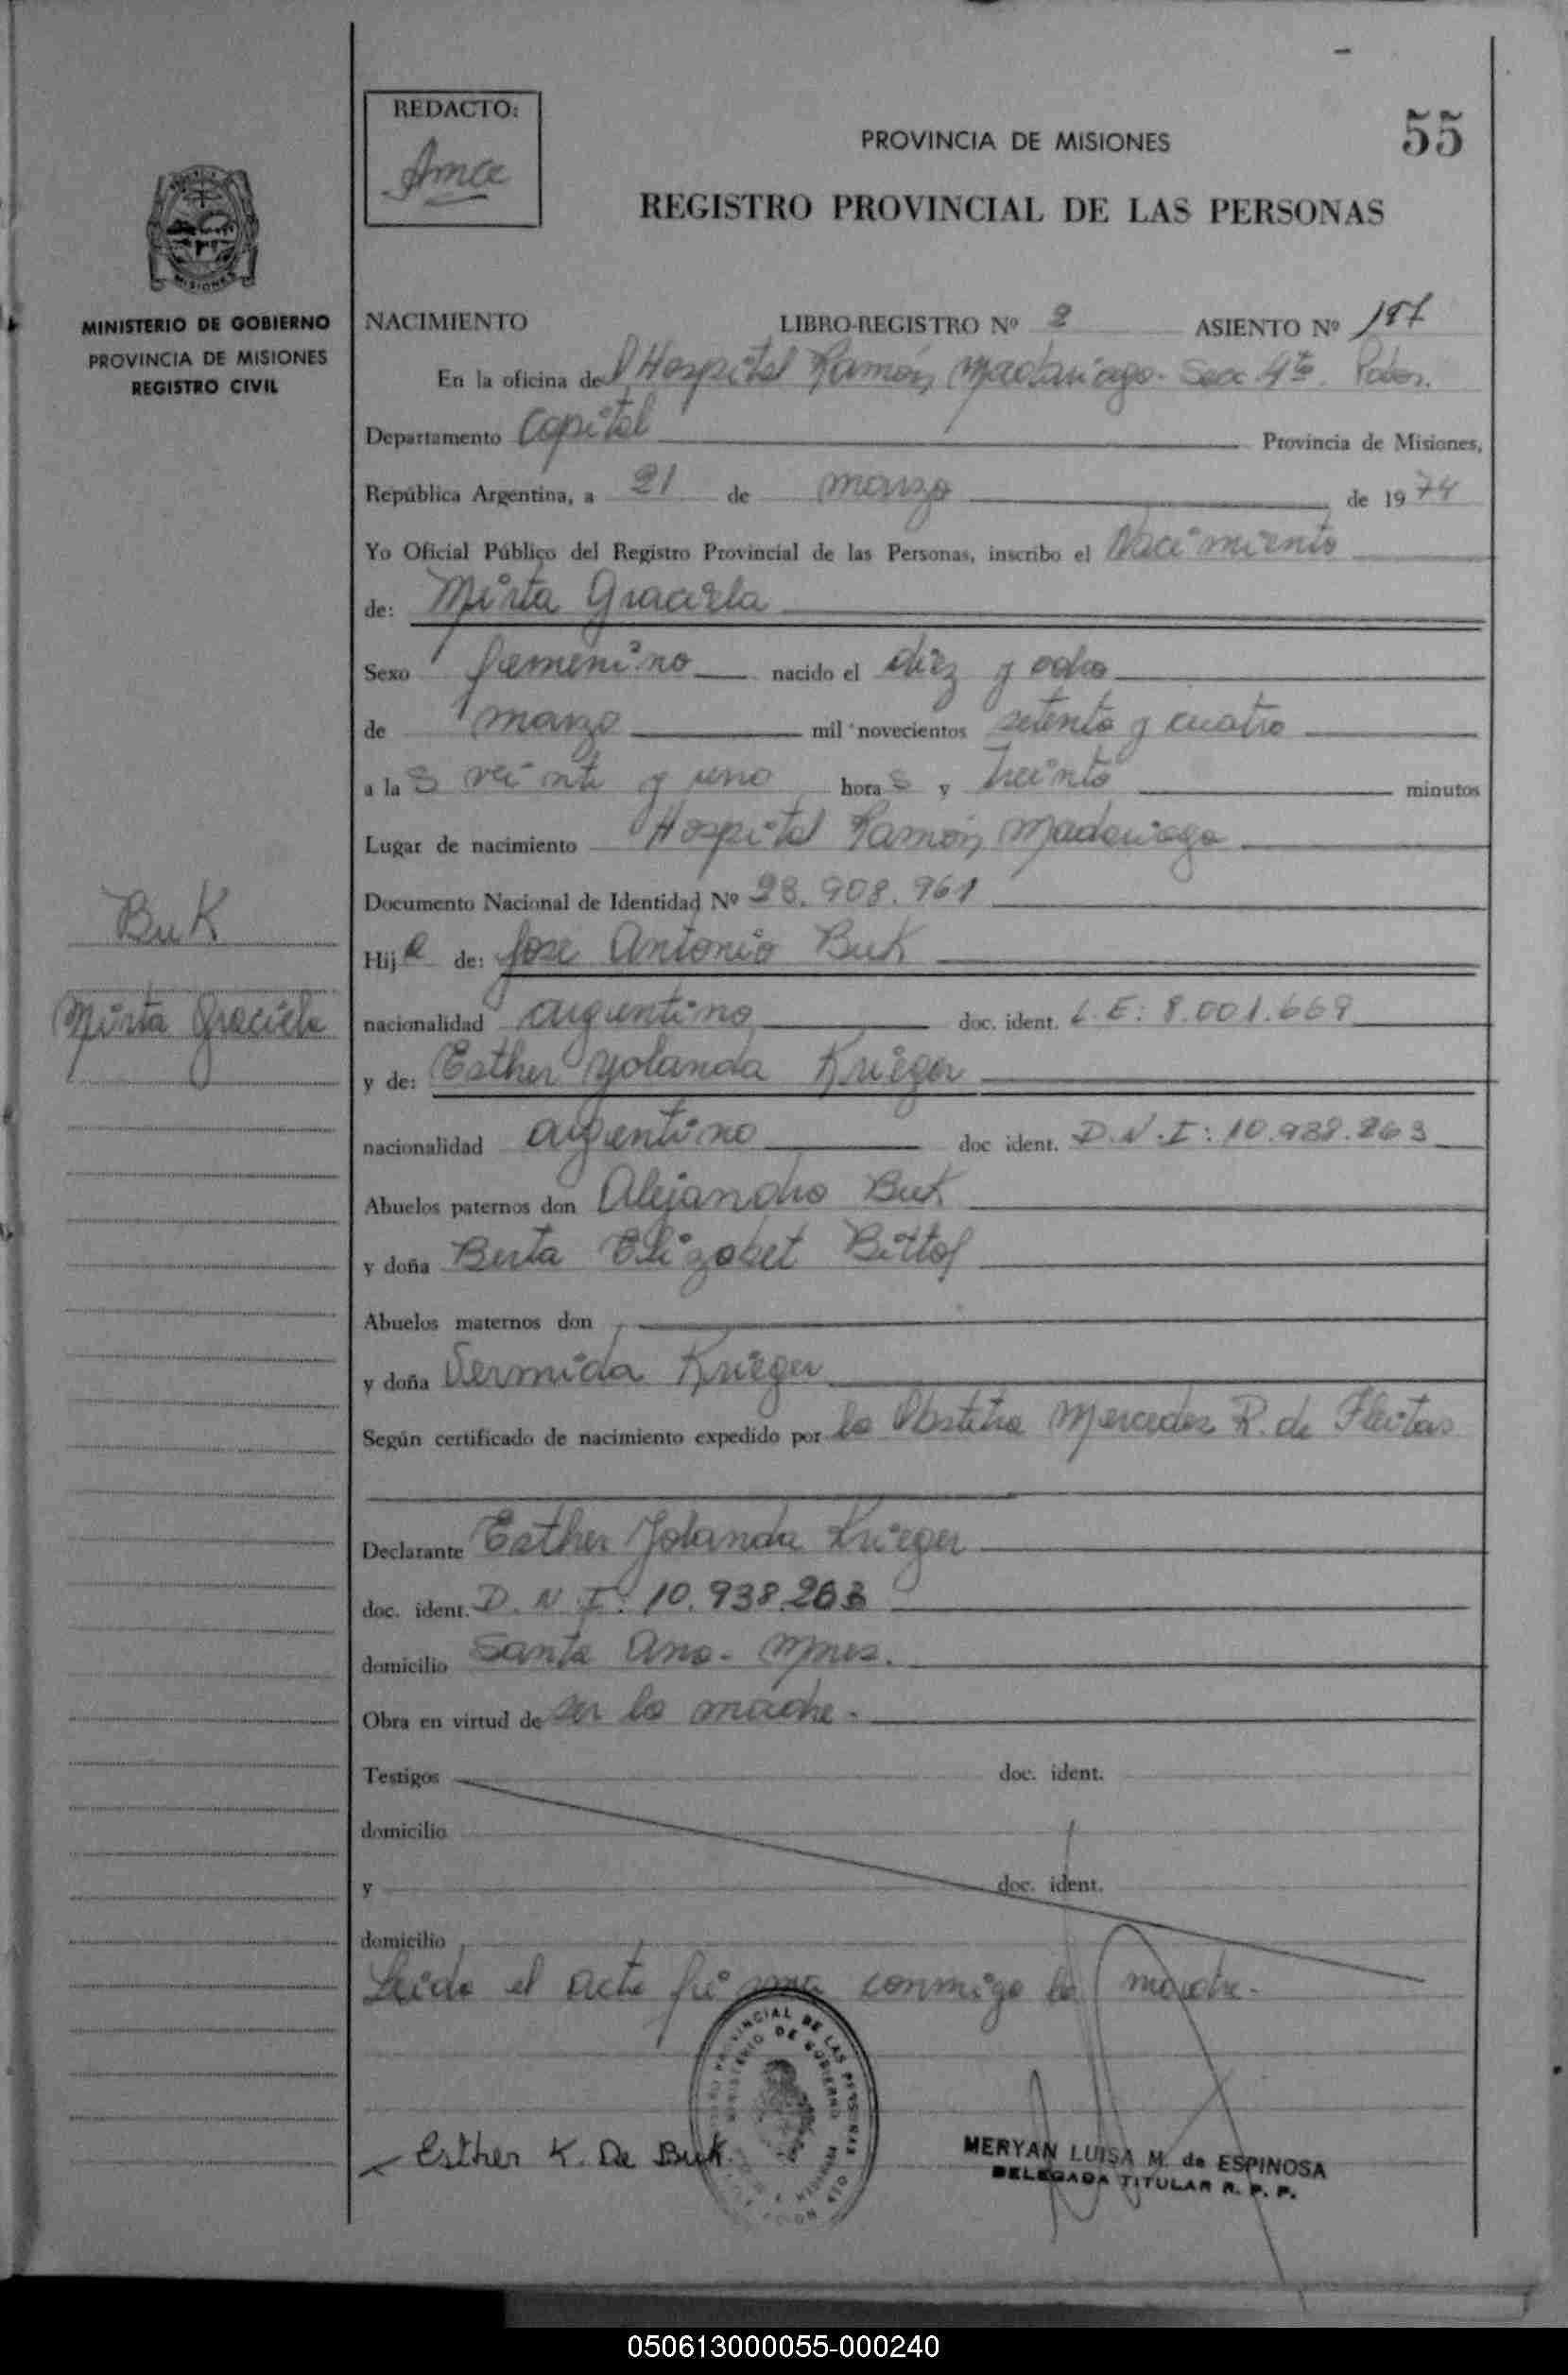 REDACTO:
PROVINCIA DE MISIONES
55
REGISTRO PROVINCIAL DE LAS PERSONAS
MISIONES
MINISTERIO DE GOBIERNO
PROVINCIA DE MISIONES
REGISTRO CIVIL
NACIMIENTO LIBRO-REGISTRO Nº 2 ASIENTO Nº
En la oficina del Hospital Ramón Madariaga. Secc. 4ta.
Departamento Capital Provincia de Misiones,
República Argentina, a 21 de marzo de 1974
Yo Oficial Público del Registro Provincial de las Personas, inscribo el Nacimiento
de: Mirta Graciela
Sexo femenino nacido el diez y ocho
de marzo mil novecientos setenta y cuatro
a las veinte y uno horas y treinta minutos
Lugar de nacimiento Hospital Ramón Madariaga
Documento Nacional de Identidad Nº 23.908.961
Buk
Mirta Graciela
Hija de: Jose Antonio Buk
nacionalidad argentino doc. ident. L.E: 8.001.669
y de: Esther Yolanda Krieger
nacionalidad argentino doc ident. D.N.I: 10.938.263
Abuelos paternos don Alejandro Buk
y doña Berta Elizabet Bittof
Abuelos maternos don
y doña Sermida Krieger
Según certificado de nacimiento expedido por la Obstetra Mercedes R. de Fleitas
Declarante Esther Yolanda Krieger
doc. ident. D.N.I: 10.938.263
domicilio Santa Ana - Mnes.
Obra en virtud de ser la madre.
Testigos doc. ident.
domicilio
y doc. ident.
domicilio
Leida el acta firma conmigo la madre.
Esther K. De Buk
MERYAN LUISA M. de ESPINOSA
DELEGADA TITULAR R. P. P.
050613000055-000240